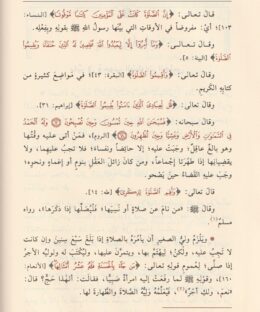 قال تعالى: ﴿إِنَّ الصَّلَاةَ كَانَتْ عَلَى الْمُؤْمِنِينَ كِتَابًا مَوْقُوتًا﴾ [النساء:
١٠٣]؛ أيْ: مفروضاً في الأوقاتِ التي بيَّنها رسولُ اللهِ ﷺ بقولِهِ وبفِعلِه.
وقال تعالى: ﴿وَمَا أُمِرُوا إِلَّا لِيَعْبُدُوا اللَّهَ مُخْلِصِينَ لَهُ الدِّينَ حُنَفَاءَ وَيُقِيمُوا
الصَّلَاةَ﴾ [البينة: ٥].
وقال تعالى: ﴿وَأَقِيمُوا الصَّلَاةَ﴾ [البقرة: ٤٣] في مَواضِعَ كثيرةٍ من
كتابِهِ الكَريم.
وقال تعالى: ﴿قُلْ لِعِبَادِيَ الَّذِينَ آمَنُوا يُقِيمُوا الصَّلَاةَ﴾ [إبراهيم: ٣١].
وقال سبحانه: ﴿فَسُبْحَانَ اللَّهِ حِينَ تُمْسُونَ وَحِينَ تُصْبِحُونَ وَلَهُ الْحَمْدُ
فِي السَّمَاوَاتِ وَالْأَرْضِ وَعَشِيًّا وَحِينَ تُظْهِرُونَ﴾ [الروم]، فمَنْ أتى عليه وقتُها
وهو بالِغٌ عاقِلٌ؛ وجَبَتْ عليه؛ إلا حائِضاً ونُفَساءَ؛ فلا تجبُ عليهما، ولا
يقضيانِها إذا طَهُرَتا إجماعاً، ومَن كان زائلَ العَقلِ بنومٍ أو إغماءٍ ونحوِه؛
وجَبَ عليه القَضاءُ حينَ يصْحو.
قال تعالى: ﴿وَأَقِمِ الصَّلَاةَ لِذِكْرِي﴾ [طه: ١٤].
وقال ﷺ: «مَن نامَ عن صَلاةٍ أو نَسِيَها؛ فلْيُصَلِّها إذا ذَكَرَها»، رواه
مسلم(١).
* ويَلزَمُ وليَّ الصغيرِ أن يأمرَهُ بالصلاةِ إذا بلَغَ سَبْعَ سِنينَ وإن كانت
لا تَجِبُ عليه، ولكنْ؛ لِيهتمَّ بها، ويتمرَّنَ عليها، ولِيُكتَبَ له ولوليِّه الأجْرُ
إذا صلَّى؛ لِعُمومِ قولِهِ تعالى: ﴿مَنْ جَاءَ بِالْحَسَنَةِ فَلَهُ عَشْرُ أَمْثَالِهَا﴾ [الأنعام:
١٦٠]، وقولِهِ ﷺ لمَّا رفَعتْ إليه امرأةٌ صَبِيّاً، فقالت: ألِهذا حَجٌّ؟ قال:
«نعم، ولكِ أجرٌ»(٢)، فيُعلِّمُهُ وليُّهُ الصَّلاةَ والطَّهارةَ لها.